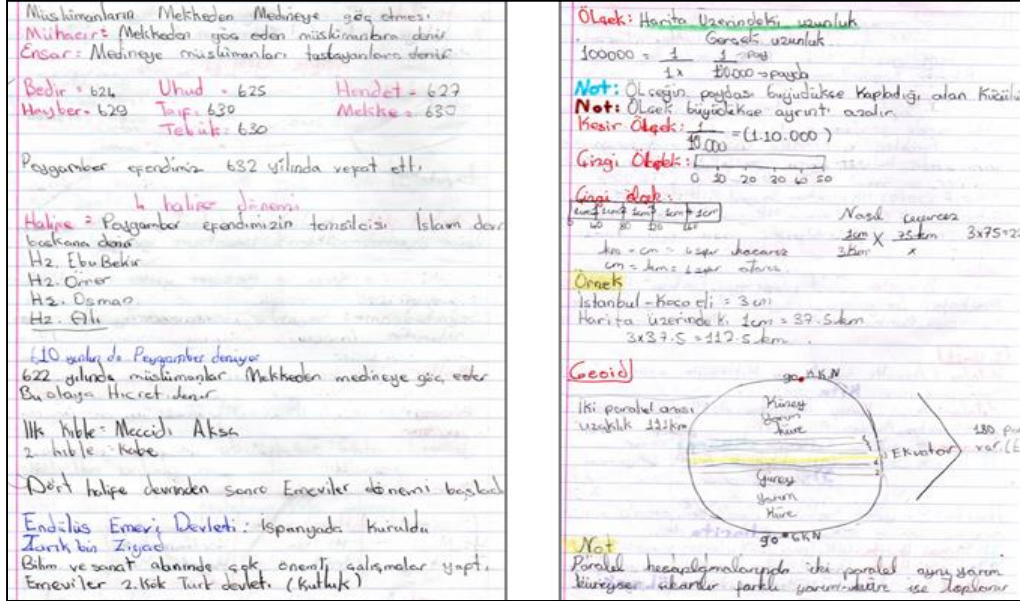 Müslümanların Mekkeden Medineye göç etmesi
Muhacir: Mekkeden göç eden müslümanlara denir
Ensar: Medineye müslümanları taşıyanlara denir
Bedir = 624 Uhud = 625 Hendek = 627
Hayber = 629 Taif = 630 Mekke = 630
Tebük: 630
Peygamber efendimiz 632 yılında vefat etti
4 halife dönemi
Halife = Peygamber efendimizin temsilcisi İslam dev
başkana denir
Hz. Ebu Bekir
Hz. Ömer
Hz. Osman
Hz. Ali
610 yılında Peygamber deniyor
622 yılında müslümanlar Mekkeden medineye göç eder
Bu olaya Hicret denir
İlk Kıble = Meccidi Aksa
2. kıble = Kabe
Dört halife devrinden sonra Emeviler dönemi başlad
Endülüs Emevi Devleti: İspanyada Kuruldu
Tarık bin Ziyad
Bilim ve sanat alanında çok önemli çalışmalar yaptı.
Emeviler 2. Kök Türk devleti (Kutluk)
Ölçek: Harita Üzerindeki uzunluk
Gerçek uzunluk
100000 = 1 1 → pay
1x 100.000 → payda
Not: Ölçeğin paydası büyüdükçe Kapladığı alan Küçülü
Not: Ölçek büyüdükçe ayrıntı azalır
Kesir Ölçek: 1 = (1.10.000)
10.000
Çizgi Ölçek:
0 10 20 30 40 50
Çizgi ölçek:
1cm 1cm 1cm 1cm 1cm
0 40 80 120 160
Nasıl çeviririz
1cm X 75km 3x75=22
3km x
km - cm = 5 sıfır
cm = km = 5 sıfır atarız
Örnek
İstanbul - Kocaeli = 3 cm
Harita üzerindeki 1cm = 37.5 km
3x37.5 = 112.5 km
Geoid
90° KKN
İki paralel arası
uzaklık 111km
Kuzey
yarım
küre
Ekvator
180 par
var. (E
Güney
yarım
Küre
90° GKN
Not
Paralel hesaplamalarında iki paralel aynı yarım
küreyse çıkarılır farklı yarım küre ise toplanır